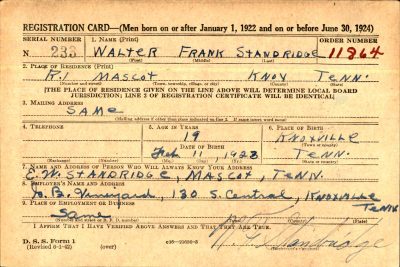 REGISTRATION CARD—(Men born on or after January 1, 1922 and on or before June 30, 1924)
SERIAL NUMBER 1. NAME (Print) ORDER NUMBER
N 233 WALTER FRANK STANDRIDGE 11864
(First) (Middle) (Last)
2. PLACE OF RESIDENCE (Print)
R.1 MASCOT KNOX TENN.
(Number and street) (Town, township, village, or city) (County) (State)
[THE PLACE OF RESIDENCE GIVEN ON THE LINE ABOVE WILL DETERMINE LOCAL BOARD
JURISDICTION; LINE 2 OF REGISTRATION CERTIFICATE WILL BE IDENTICAL]
3. MAILING ADDRESS
SAME
(Mailing address if other than place indicated on line 2. If same insert word same)
4. TELEPHONE 5. AGE IN YEARS 6. PLACE OF BIRTH
19 KNOXVILLE
DATE OF BIRTH (Town or county)
Feb 11 1923 TENN.
(Exchange) (Number) (Mo.) (Day) (Yr.) (State or country)
7. NAME AND ADDRESS OF PERSON WHO WILL ALWAYS KNOW YOUR ADDRESS
E.W. STANDRIDGE, MASCOT, TENN.
8. EMPLOYER'S NAME AND ADDRESS
B. Vineyard, 130 S. Central, KNOXVILLE
TENN
9. PLACE OF EMPLOYMENT OR BUSINESS
Same
(Number and street or R. F. D. number) (Town) (County) (State)
I AFFIRM THAT I HAVE VERIFIED ABOVE ANSWERS AND THAT THEY ARE TRUE.
D. S. S. Form 1
(Revised 6-9-42) (over) W. F. Standridge